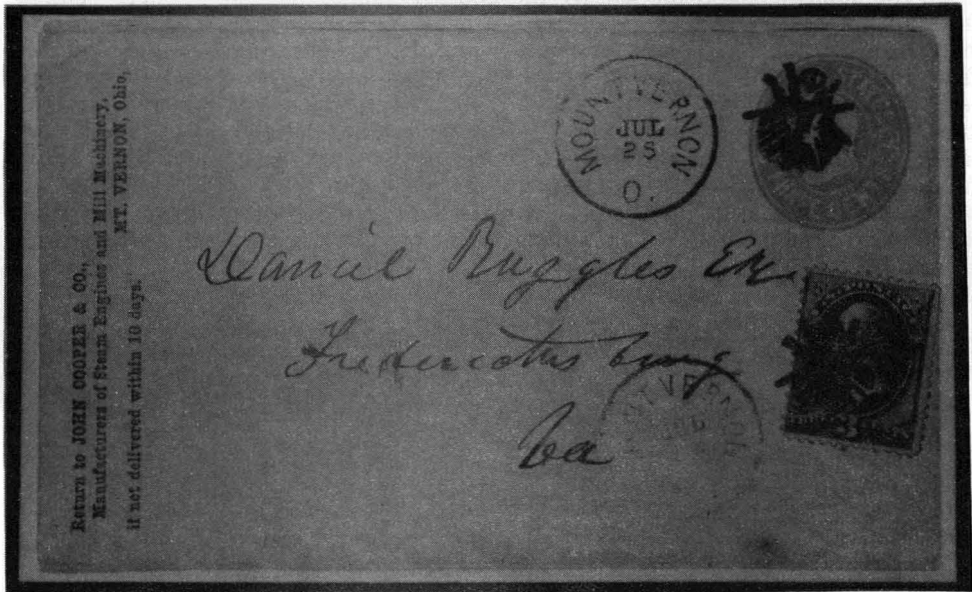 Return to JOHN COOPER & CO.,
Manufacturers of Steam Engines and Mill Machinery,
MT. VERNON, Ohio,
if not delivered within 10 days.
MOUNT VERNON
JUL
25
O.
Daniel Ruggles Esq
Fredericksburg
Va